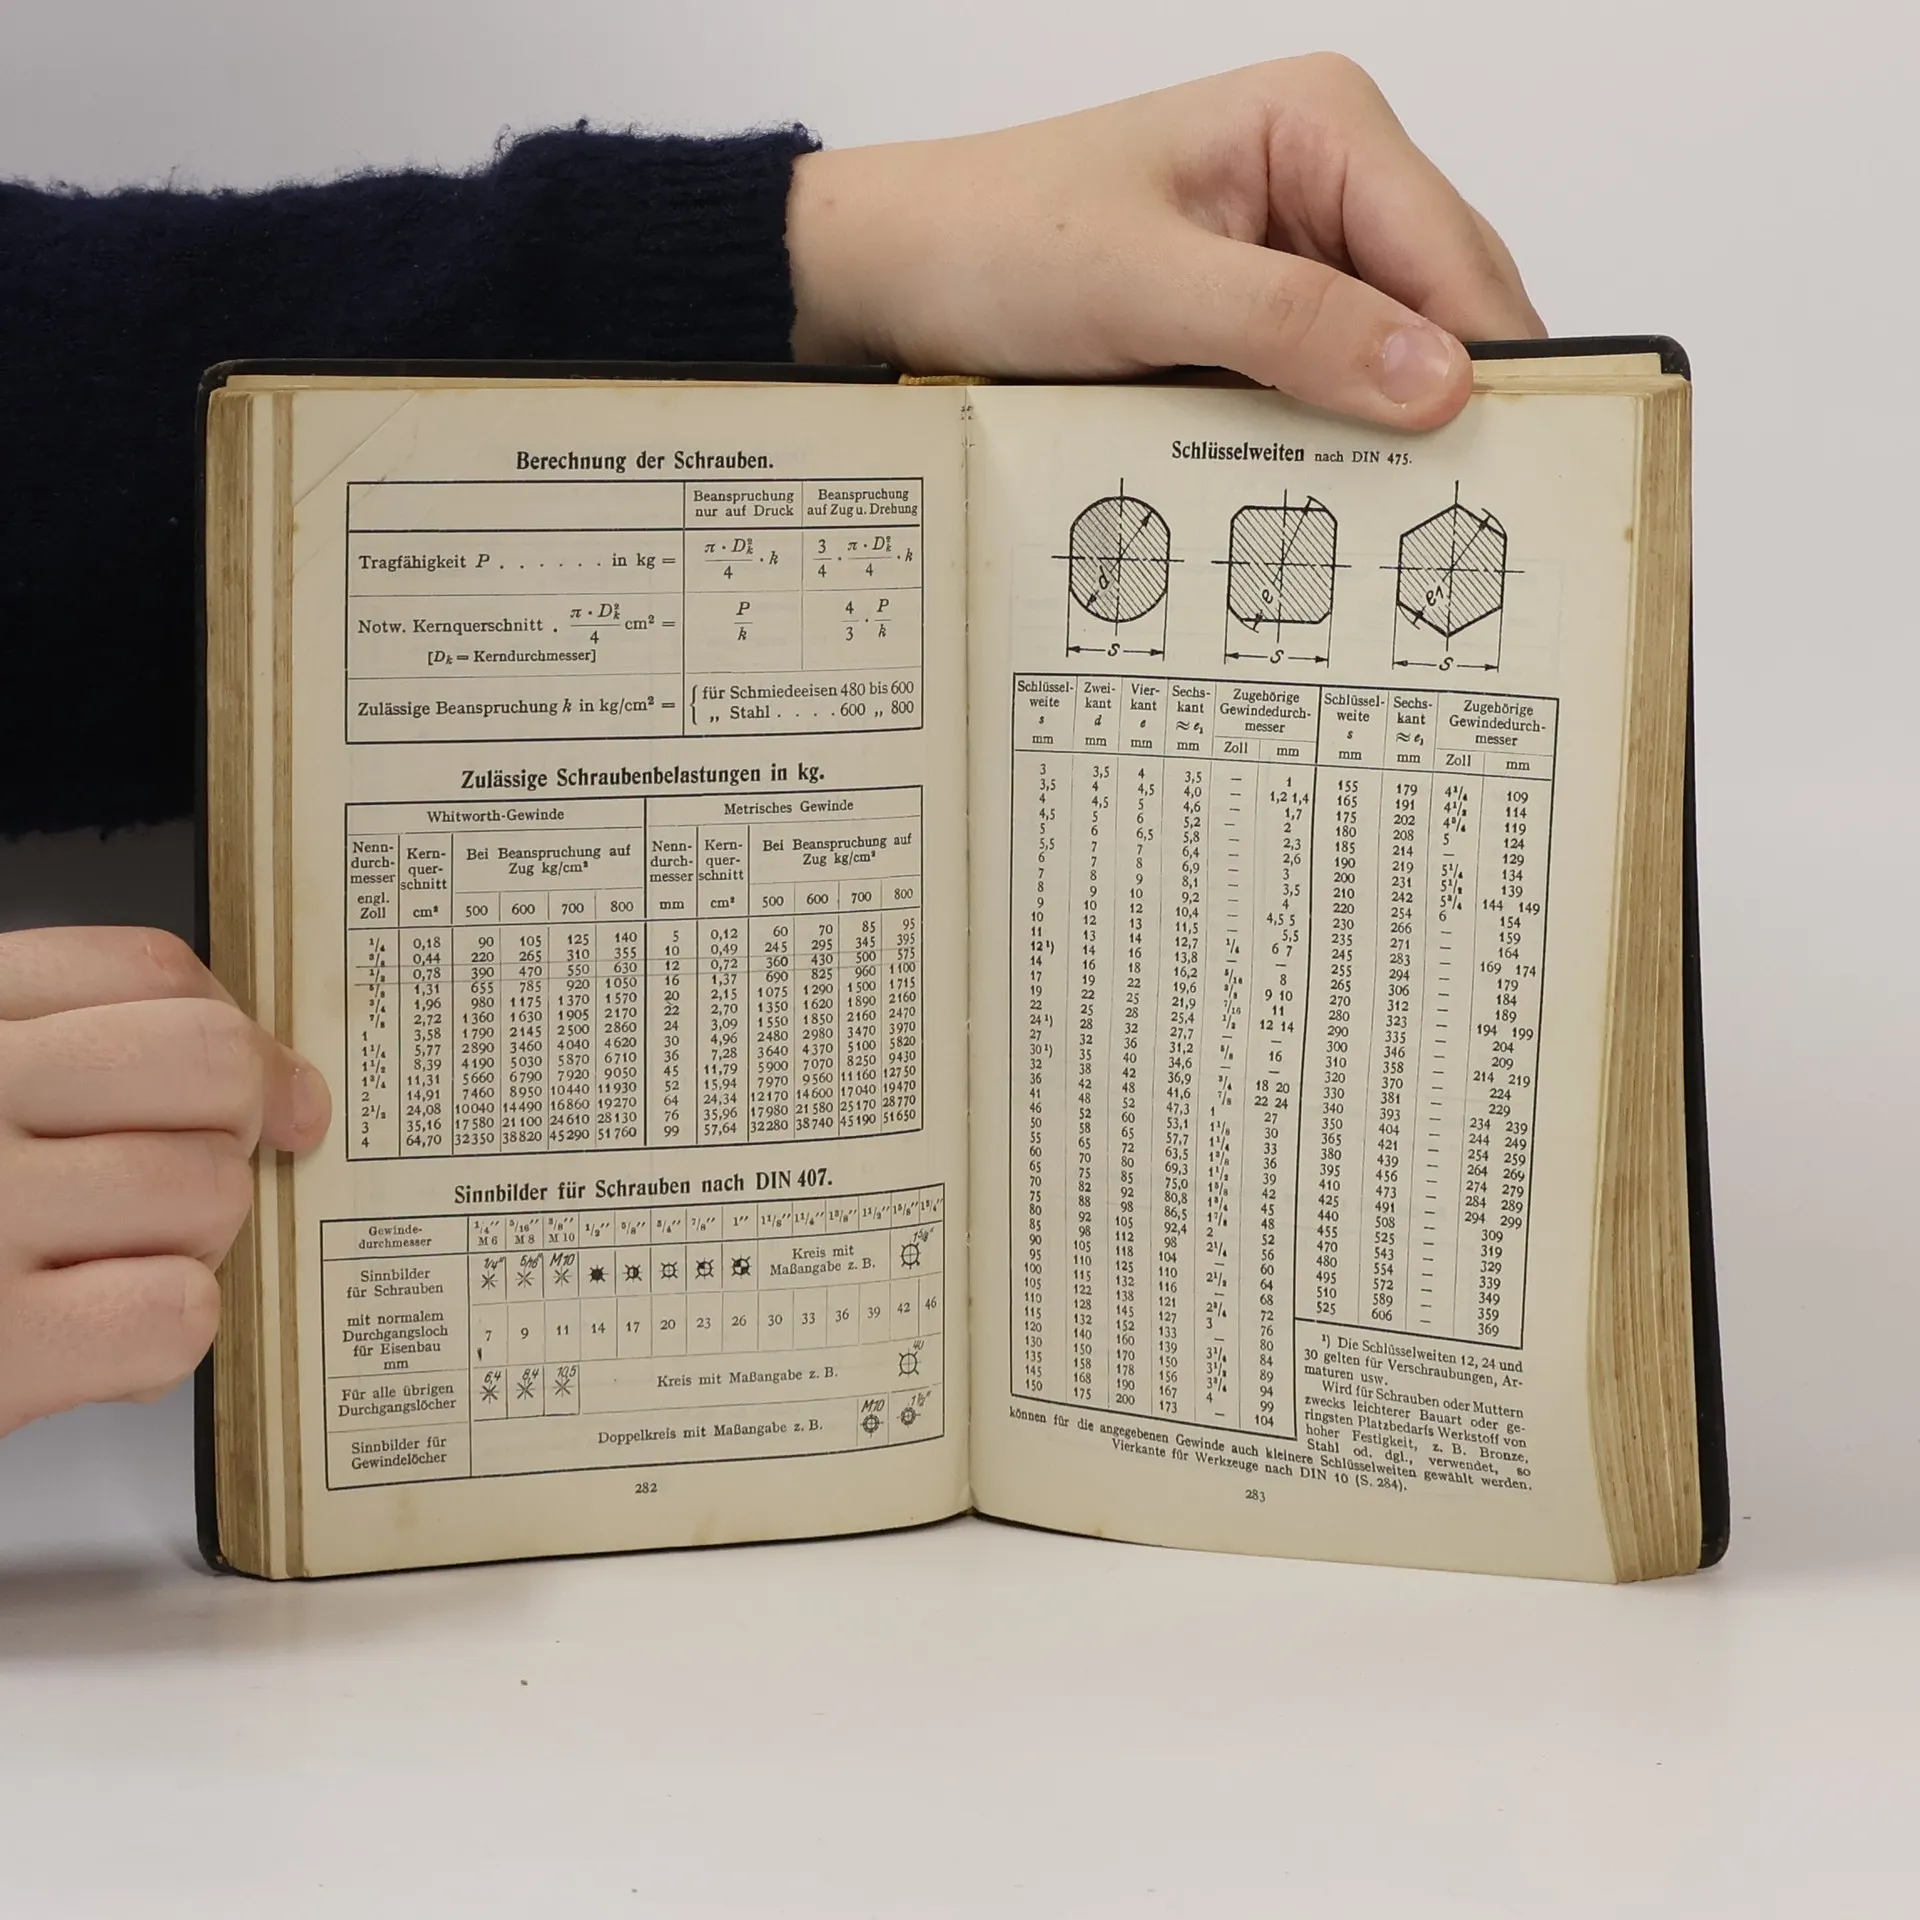 Berechnung der Schrauben.
Beanspruchung nur auf Druck | Beanspruchung auf Zug u. Drehung
Tragfähigkeit P . . . . . . in kg = | π · D²ₖ / 4 · k | 3/4 · π · D²ₖ / 4 · k
Notw. Kernquerschnitt . π · D²ₖ / 4 cm² = | P/k | 4/3 · P/k
[Dₖ = Kerndurchmesser]
Zulässige Beanspruchung k in kg/cm² = { für Schmiedeeisen 480 bis 600
„ Stahl . . . . 600 „ 800
Zulässige Schraubenbelastungen in kg.
Whitworth-Gewinde | Metrisches Gewinde
Nenn-durch-messer engl. Zoll | Kern-quer-schnitt cm² | Bei Beanspruchung auf Zug kg/cm² | Nenn-durch-messer mm | Kern-quer-schnitt cm² | Bei Beanspruchung auf Zug kg/cm²
500 | 600 | 700 | 800 | 500 | 600 | 700 | 800
1/4 0,18 90 105 125 140 5 0,12 60 70 85 95
3/8 0,44 220 265 310 355 10 0,49 245 295 345 395
1/2 0,78 390 470 550 630 12 0,72 360 430 500 575
5/8 1,31 655 785 920 1050 16 1,37 690 825 960 1100
3/4 1,96 980 1175 1370 1570 20 2,15 1075 1290 1500 1715
7/8 2,72 1360 1630 1905 2170 22 2,70 1350 1620 1890 2160
1 3,58 1790 2145 2500 2860 24 3,09 1550 1850 2160 2470
1 1/4 5,77 2890 3460 4040 4620 30 4,96 2480 2980 3470 3970
1 1/2 8,39 4190 5030 5870 6710 36 7,28 3640 4370 5100 5820
1 3/4 11,31 5660 6790 7920 9050 45 11,79 5900 7070 8250 9430
2 14,91 7460 8950 10440 11930 52 15,94 7970 9560 11160 12750
2 1/2 24,08 10040 14490 16860 19270 64 24,34 12170 14600 17040 19470
3 35,16 17580 21100 24610 28130 76 35,96 17980 21580 25170 28770
4 64,70 32350 38820 45290 51760 99 57,64 32280 38740 45190 51650
Sinnbilder für Schrauben nach DIN 407.
Gewinde-durchmesser | 1/4″ M 6 | 5/16″ M 8 | 3/8″ M 10 | 1/2″ | 5/8″ | 3/4″ | 7/8″ | 1″ | 1 1/8″ | 1 1/4″ | 1 3/8″ | 1 1/2″ | 1 5/8″ | 1 3/4″
Sinnbilder für Schrauben | 1/4″ | 5/16″ | M10 | Kreis mit Maßangabe z. B. | 1 5/8″
mit normalem Durchgangsloch für Eisenbau mm | 7 | 9 | 11 | 14 | 17 | 20 | 23 | 26 | 30 | 33 | 36 | 39 | 42 | 46
Für alle übrigen Durchgangslöcher | 6,4 | 8,4 | 10,5 | Kreis mit Maßangabe z. B. | 40
Sinnbilder für Gewindelöcher | Doppelkreis mit Maßangabe z. B. | M10 | 1 1/2″
282
Schlüsselweiten nach DIN 475.
d e e1
s s s
Schlüssel-weite s mm | Zwei-kant d mm | Vier-kant e mm | Sechs-kant ≈ e₁ mm | Zugehörige Gewindedurch-messer Zoll | mm | Schlüssel-weite s mm | Sechs-kant ≈ e₁ mm | Zugehörige Gewindedurch-messer Zoll | mm
3 3,5 4 3,5 — 1 155 179 4 1/4 109
3,5 4 4,5 4,0 — 1,2 1,4 165 191 4 1/2 114
4 4,5 5 4,6 — 1,7 175 202 4 3/4 119
4,5 5 6 5,2 — 2 180 208 5 124
5 6 6,5 5,8 — 2,3 185 214 — 129
5,5 7 7 6,4 — 2,6 190 219 5 1/4 134
6 7 8 6,9 — 3 200 231 5 1/2 139
7 8 9 8,1 — 3,5 210 242 5 3/4 144 149
8 9 10 9,2 — 4 220 254 6 154
9 10 12 10,4 — 4,5 5 230 266 — 159
10 12 13 11,5 — 5,5 235 271 — 164
11 13 14 12,7 1/4 6 7 245 283 — 169 174
12¹) 14 16 13,8 — — 255 294 — 179
14 16 18 16,2 5/16 8 265 306 — 184
17 19 22 19,6 3/8 9 10 270 312 — 189
19 22 25 21,9 7/16 11 280 323 — 194 199
22 25 28 25,4 1/2 12 14 290 335 — 204
24¹) 28 32 27,7 — — 300 346 — 209
27 32 36 31,2 5/8 16 310 358 — 214 219
30¹) 35 40 34,6 — — 320 370 — 224
32 38 42 36,9 3/4 18 20 330 381 — 229
36 42 48 41,6 7/8 22 24 340 393 — 234 239
41 48 52 47,3 1 27 350 404 — 244 249
46 52 60 53,1 1 1/8 30 365 421 — 254 259
50 58 65 57,7 1 1/4 33 380 439 — 264 269
55 65 72 63,5 1 3/8 36 395 456 — 274 279
60 70 80 69,3 1 1/2 39 410 473 — 284 289
65 75 85 75,0 1 5/8 42 425 491 — 294 299
70 82 92 80,8 1 3/4 45 440 508 — 309
75 88 98 86,5 1 7/8 48 455 525 — 319
80 92 105 92,4 2 52 470 543 — 329
85 98 112 98 2 1/4 56 480 554 — 339
90 105 118 104 — 60 495 572 — 349
95 110 125 110 2 1/2 64 510 589 — 359
100 115 132 116 — 68 525 606 — 369
105 122 138 121 2 3/4 72
110 128 145 127 3 76
115 132 152 133 — 80
120 140 160 139 3 1/4 84
130 150 170 150 3 1/2 89
135 158 178 156 3 3/4 94
145 168 190 167 4 99
150 175 200 173 — 104
¹) Die Schlüsselweiten 12, 24 und
30 gelten für Verschraubungen, Ar-
maturen usw.
Wird für Schrauben oder Muttern
zwecks leichterer Bauart oder ge-
ringsten Platzbedarfs Werkstoff von
hoher Festigkeit, z. B. Bronze,
Stahl od. dgl., verwendet, so
können für die angegebenen Gewinde auch kleinere Schlüsselweiten gewählt werden.
Vierkante für Werkzeuge nach DIN 10 (S. 284).
283